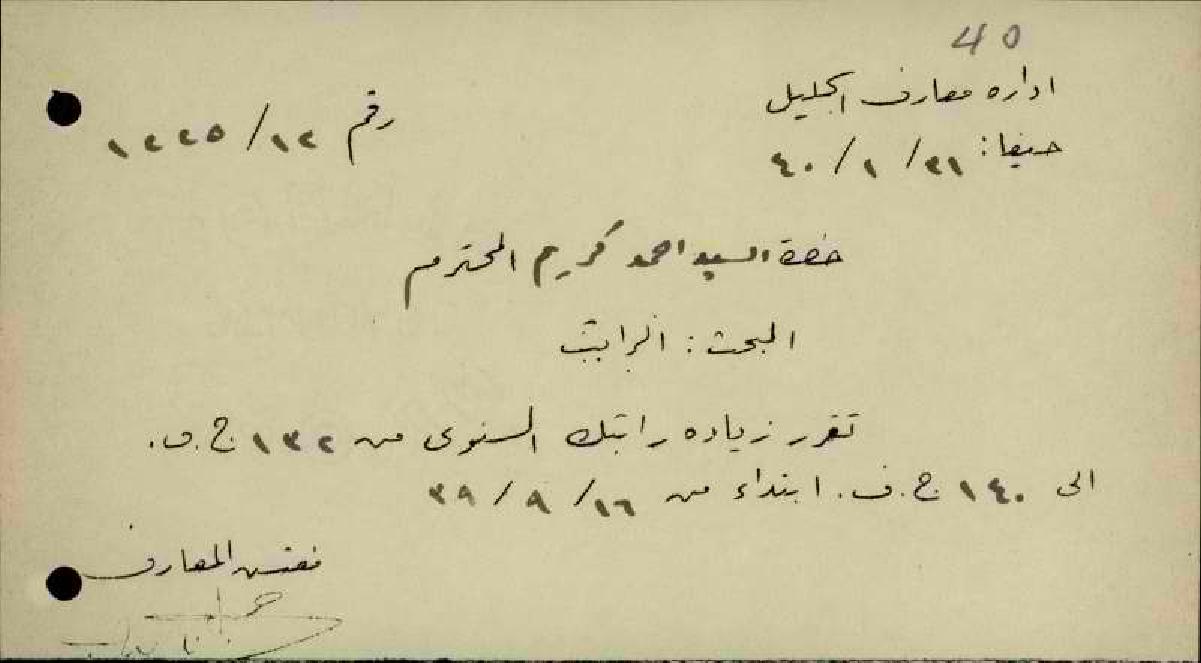 40
اداره معارف الجليل
رقم ١٢/١٢٢٥
حيفا: ٣١/١/٤٠
حضرة السيد احمد كريم المحترم
البحث: الراتب
تقرر زياده راتبك السنوى من ١٣٢ ج.ف.
الى ١٤٠ ج.ف. ابتداء من ١٦/٩/٣٩
مفتش المعارف